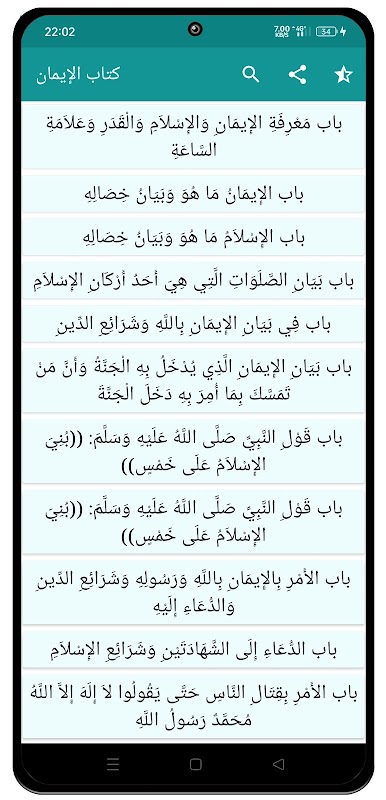 22:02
7.00 KB/S 4G 34
كتاب الإيمان
باب مَعْرِفَةِ الإِيمَانِ وَالإِسْلاَمِ وَالْقَدَرِ وَعَلاَمَةِ
السَّاعَةِ
باب الإِيمَانُ مَا هُوَ وَبَيَانُ خِصَالِهِ
باب الإِسْلاَمُ مَا هُوَ وَبَيَانُ خِصَالِهِ
باب بَيَانِ الصَّلَوَاتِ الَّتِي هِيَ أَحَدُ أَرْكَانِ الإِسْلاَمِ
باب فِي بَيَانِ الإِيمَانِ بِاللَّهِ وَشَرَائِعِ الدِّينِ
باب بَيَانِ الإِيمَانِ الَّذِي يُدْخَلُ بِهِ الْجَنَّةُ وَأَنَّ مَنْ
تَمَسَّكَ بِمَا أُمِرَ بِهِ دَخَلَ الْجَنَّةَ
باب قَوْلِ النَّبِيِّ صَلَّى اللَّهُ عَلَيْهِ وَسَلَّمَ: ((بُنِيَ
الإِسْلاَمُ عَلَى خَمْسٍ))
باب قَوْلِ النَّبِيِّ صَلَّى اللَّهُ عَلَيْهِ وَسَلَّمَ: ((بُنِيَ
الإِسْلاَمُ عَلَى خَمْسٍ))
باب الأَمْرِ بِالإِيمَانِ بِاللَّهِ وَرَسُولِهِ وَشَرَائِعِ الدِّينِ
وَالدُّعَاءِ إِلَيْهِ
باب الدُّعَاءِ إِلَى الشَّهَادَتَيْنِ وَشَرَائِعِ الإِسْلاَمِ
باب الأَمْرِ بِقِتَالِ النَّاسِ حَتَّى يَقُولُوا لاَ إِلَهَ إِلاَّ اللَّهُ
مُحَمَّدٌ رَسُولُ اللَّهِ